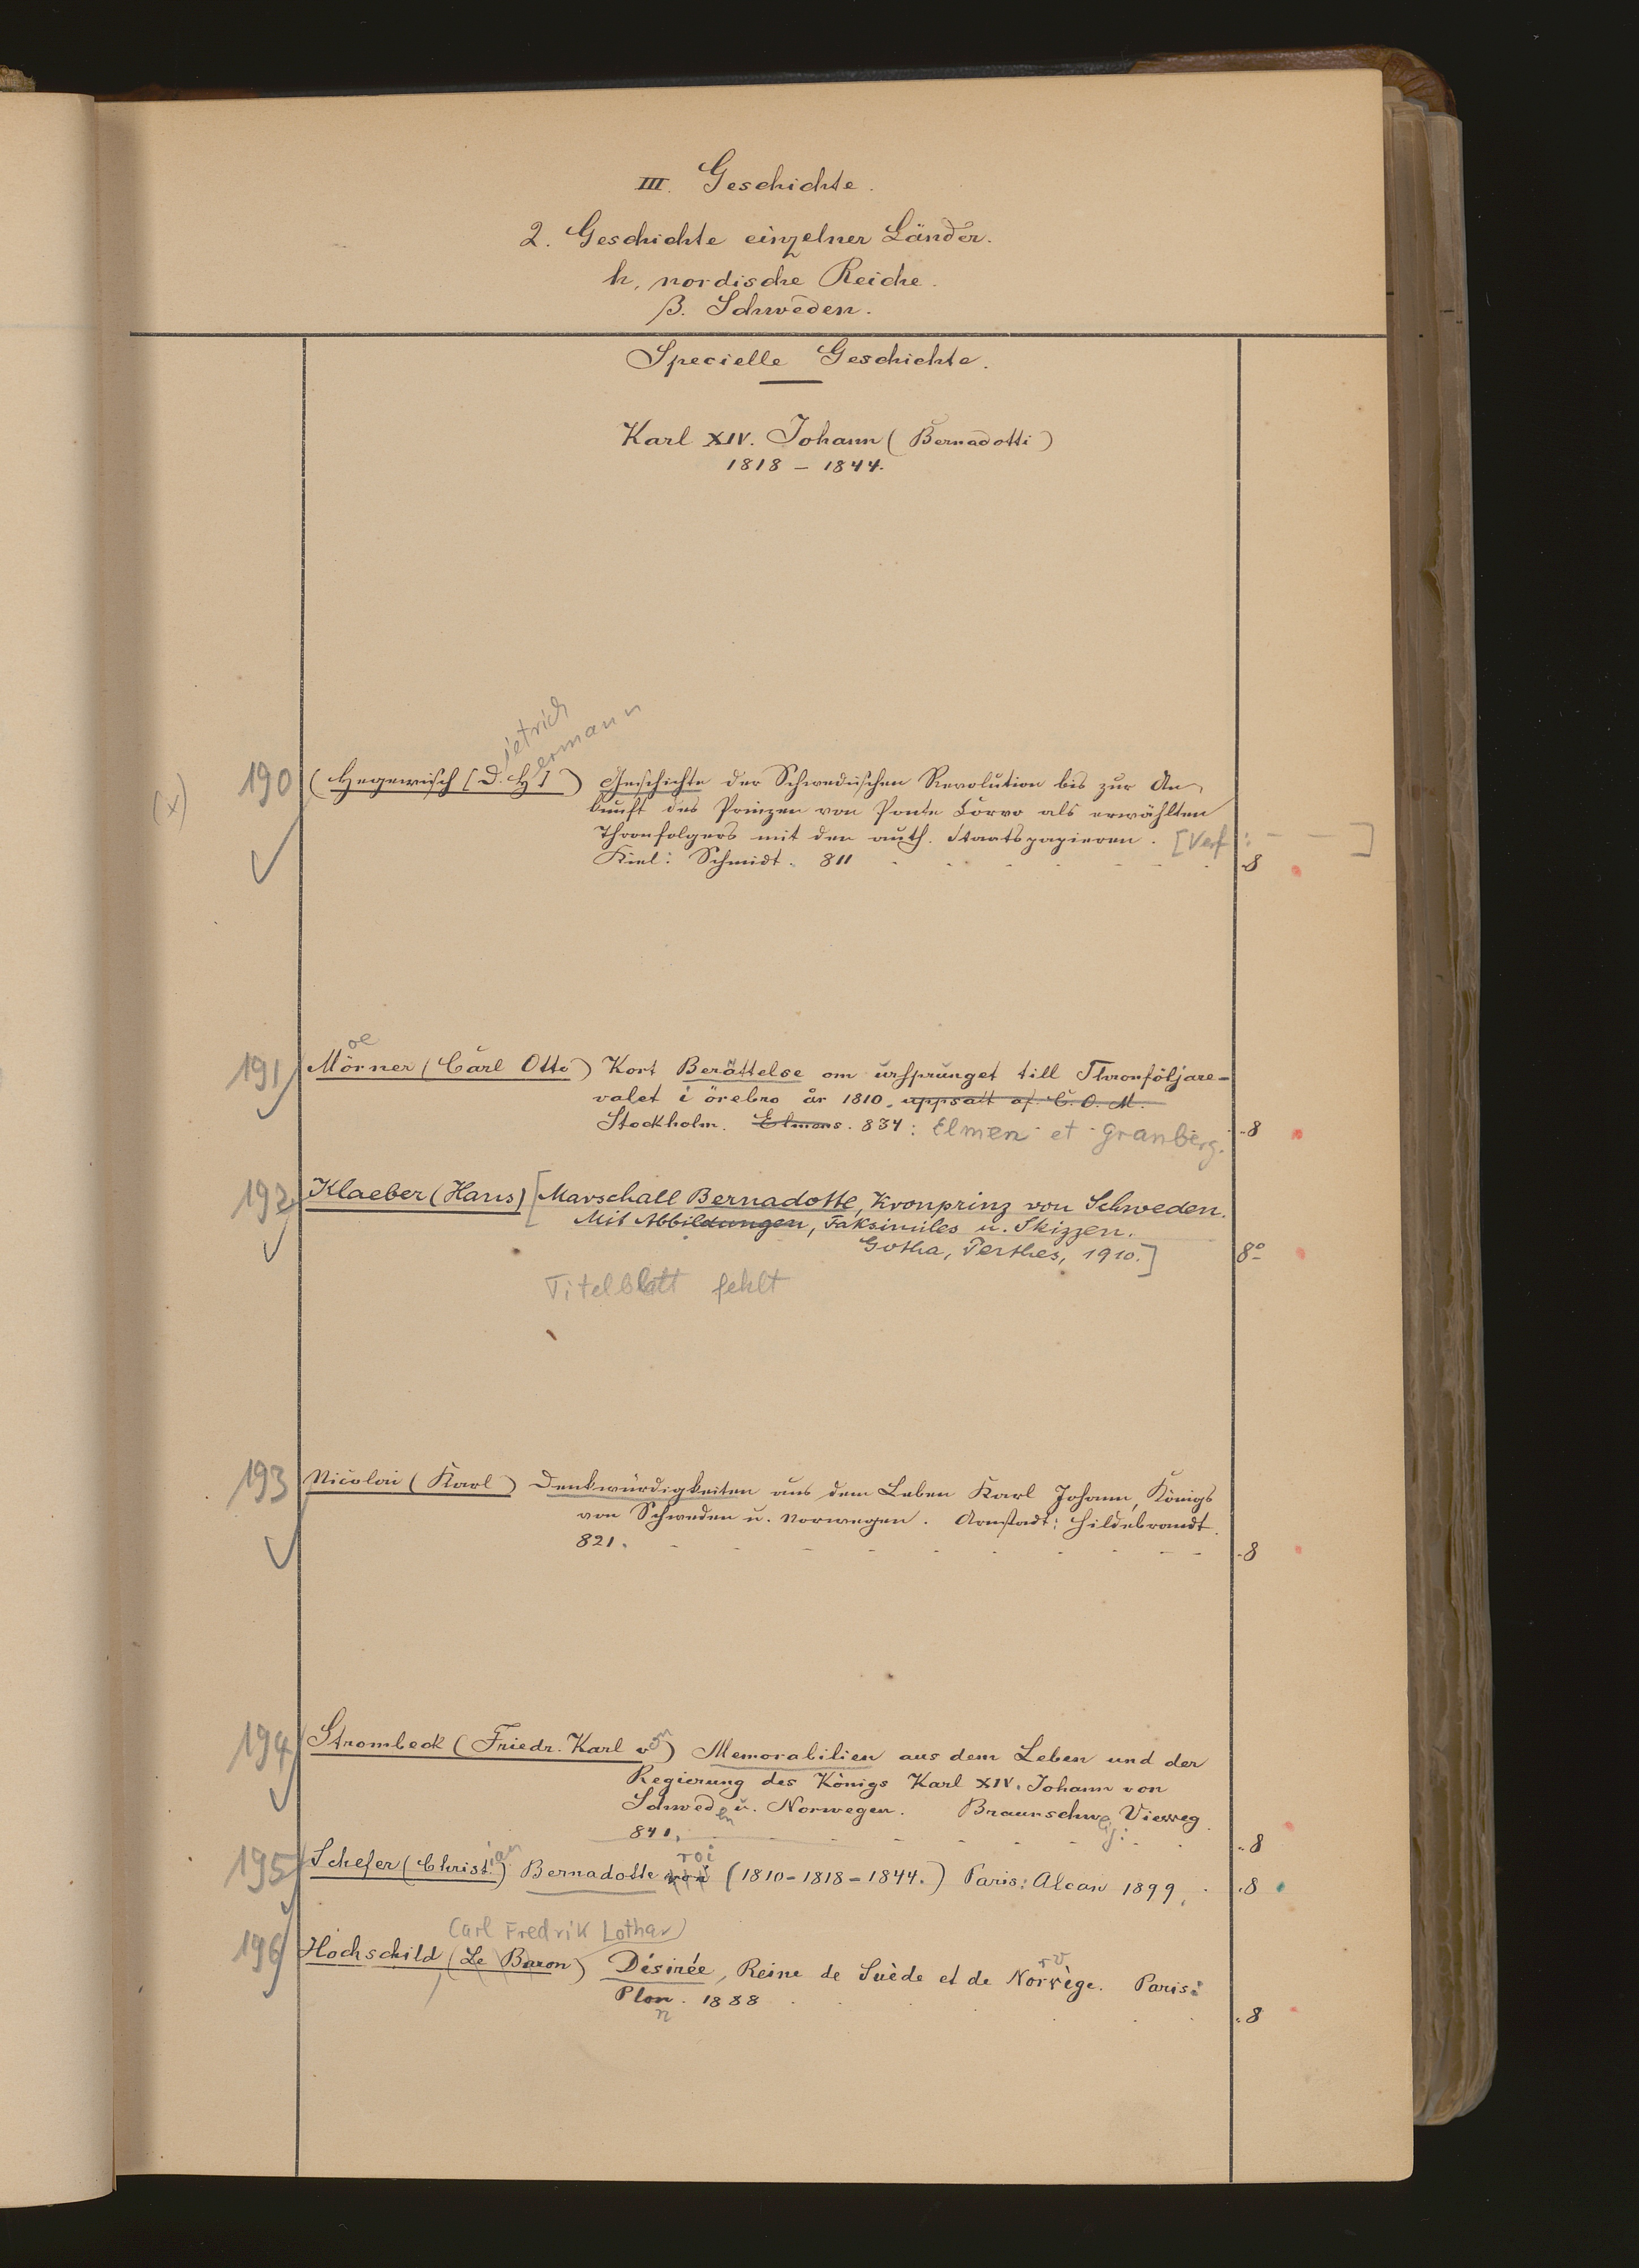 III. Geschichte.
2. Geschichte einzelner Länder.
h, nordische Reiche.
β. Schweden.
Specielle Geschichte.
Karl XIV. Johann (Bernadotti)
1818 – 1844.
ietrich
ermann
(x) 190 (Hegewisch [D. H]) Geschichte der Schwedischen Revolution bis zur An-
kunft des Prinzen von Ponte Corvo als erwählten
Thronfolgers mit den auth. Staatspapieren. [Verf: – – ]
Kiel: Schmidt. 811 . 8
oe
191 Mörner (Carl Otto) Kort Berättelse om ursprunget till Thronföljare-
valet i örebro år 1810. uppsatt af. C. O. M.
Stockholm. Elmens. 834: Elmen et Granberg. . 8
192 Klaeber (Hans) [Marschall Bernadotte, Kronprinz von Schweden.
Mit Abbildungen, Faksimiles u. Skizzen.
Gotha, Perthes, 1910.] 8°
Titelblatt fehlt
193 Nicolai (Karl) Denkwürdigkeiten aus dem Leben Karl Johann, Königs
von Schweden u. Norwegen. Arnstadt: Hildebrandt.
821. . 8
194 Strombeck (Friedr. Karl von) Memorabilien aus dem Leben und der
Regierung des Königs Karl XIV. Johann von
Schweden u. Norwegen. Braunschweig: Vieweg.
841. . 8
roi
195 Schefer (Christian) Bernadotte roi (1810–1818–1844.) Paris: Alcan 1899. . 8
Carl Fredrik Lothar)
196 Hochschild (Le Baron) Désirée, Reine de Suède et de Norvège. Paris:
Plon. 1888 . 8
n